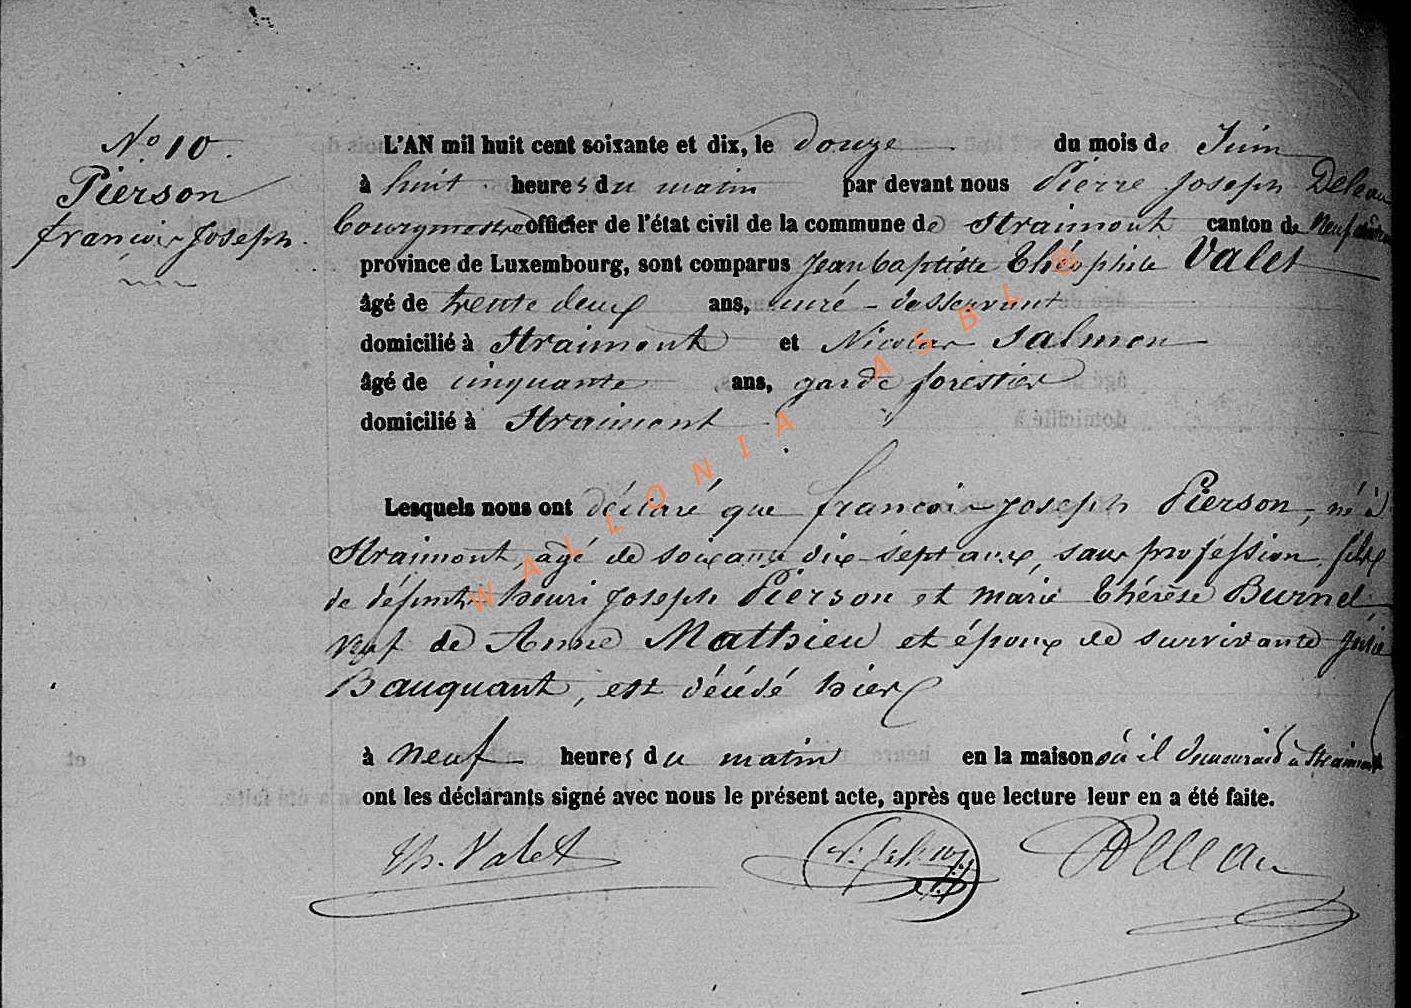 N.° 10.
Pierson
françois Joseph.
L'AN mil huit cent soixante et dix, le douze du mois de Juin
à huit heures du matin par devant nous Pierre Joseph Deleau
bourgmestre officier de l'état civil de la commune de Straimont canton de Neufchâteau
province de Luxembourg, sont comparus Jean baptiste Théophile Valet
âgé de trente deux ans, curé - desservant
domicilié à Straimont et Nicolas Salmon
âgé de cinquante ans, garde forestier
domicilié à Straimont
Lesquels nous ont déclaré que françois Joseph Pierson, né à
Straimont, agé de soixante dix-sept ans, sans profession, fils
de défunts henri Joseph Pierson et marie thérèse Burnel
veuf de Anne Mathieu et époux de survivante
Bauquant, est décédé hier
à neuf heures du matin en la maison où il demeurait à Straimont
ont les déclarants signé avec nous le présent acte, après que lecture leur en a été faite.
Th. Valet N. Salmon Deleau
WALLONIA ASBL ®